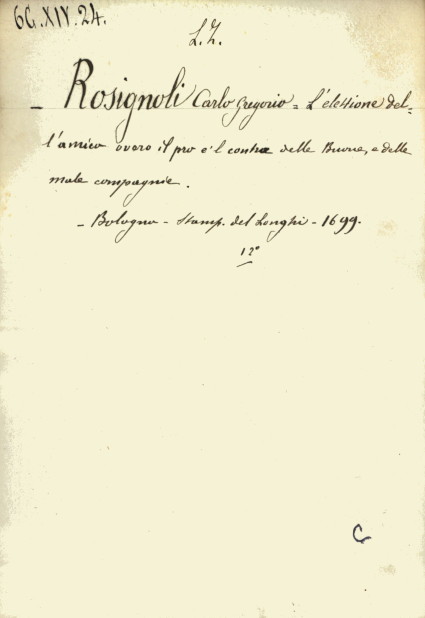 6G.XIV.24.
L.Z.
- Rosignoli Carlo Gregorio = L'elezione del-
l'amico overo il pro e'l contra delle Buone, e delle
male compagnie.
- Bologna - Stamp. del Longhi - 1699.
12º
C